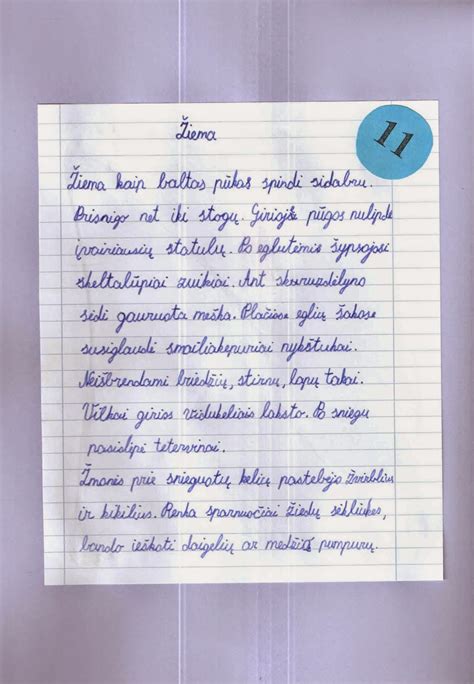 11
Žiema
Žiema kaip baltas pūkas spindi sidabru.
Prisnigo net iki stogų. Girioje pūgos nulipdė
įvairiausių statulų. Po eglutėmis šypsojosi
skeltalūpiai zuikiai. Ant skuruzdėlyno
sėdi gauruota meška. Plačiose eglių šakose
susiglaudė smailiakepuriai nykštukai.
Neišbrendami briedžių, stirnų, lapų takai.
Vilkai girios vidukeliais laksto. Po sniegu
pasislėpė tetervinai.
Žmonės prie snieguotų kelių pastebėjo žvirblius
ir kikilius. Renka sparnuočiai žiedų sėkliukes,
bando ieškoti daigelių ar medžių pumpurų.